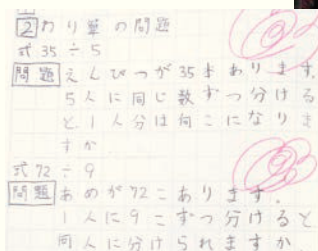 2 わり算の問題
式 35÷5
問題 えんぴつが35本あります。
5人に同じ数ずつ分ける
と、1人分は何こになりま
すか。
式 72÷9
問題 あめが72こあります。
1人に9こずつ分けると
何人に分けられますか。